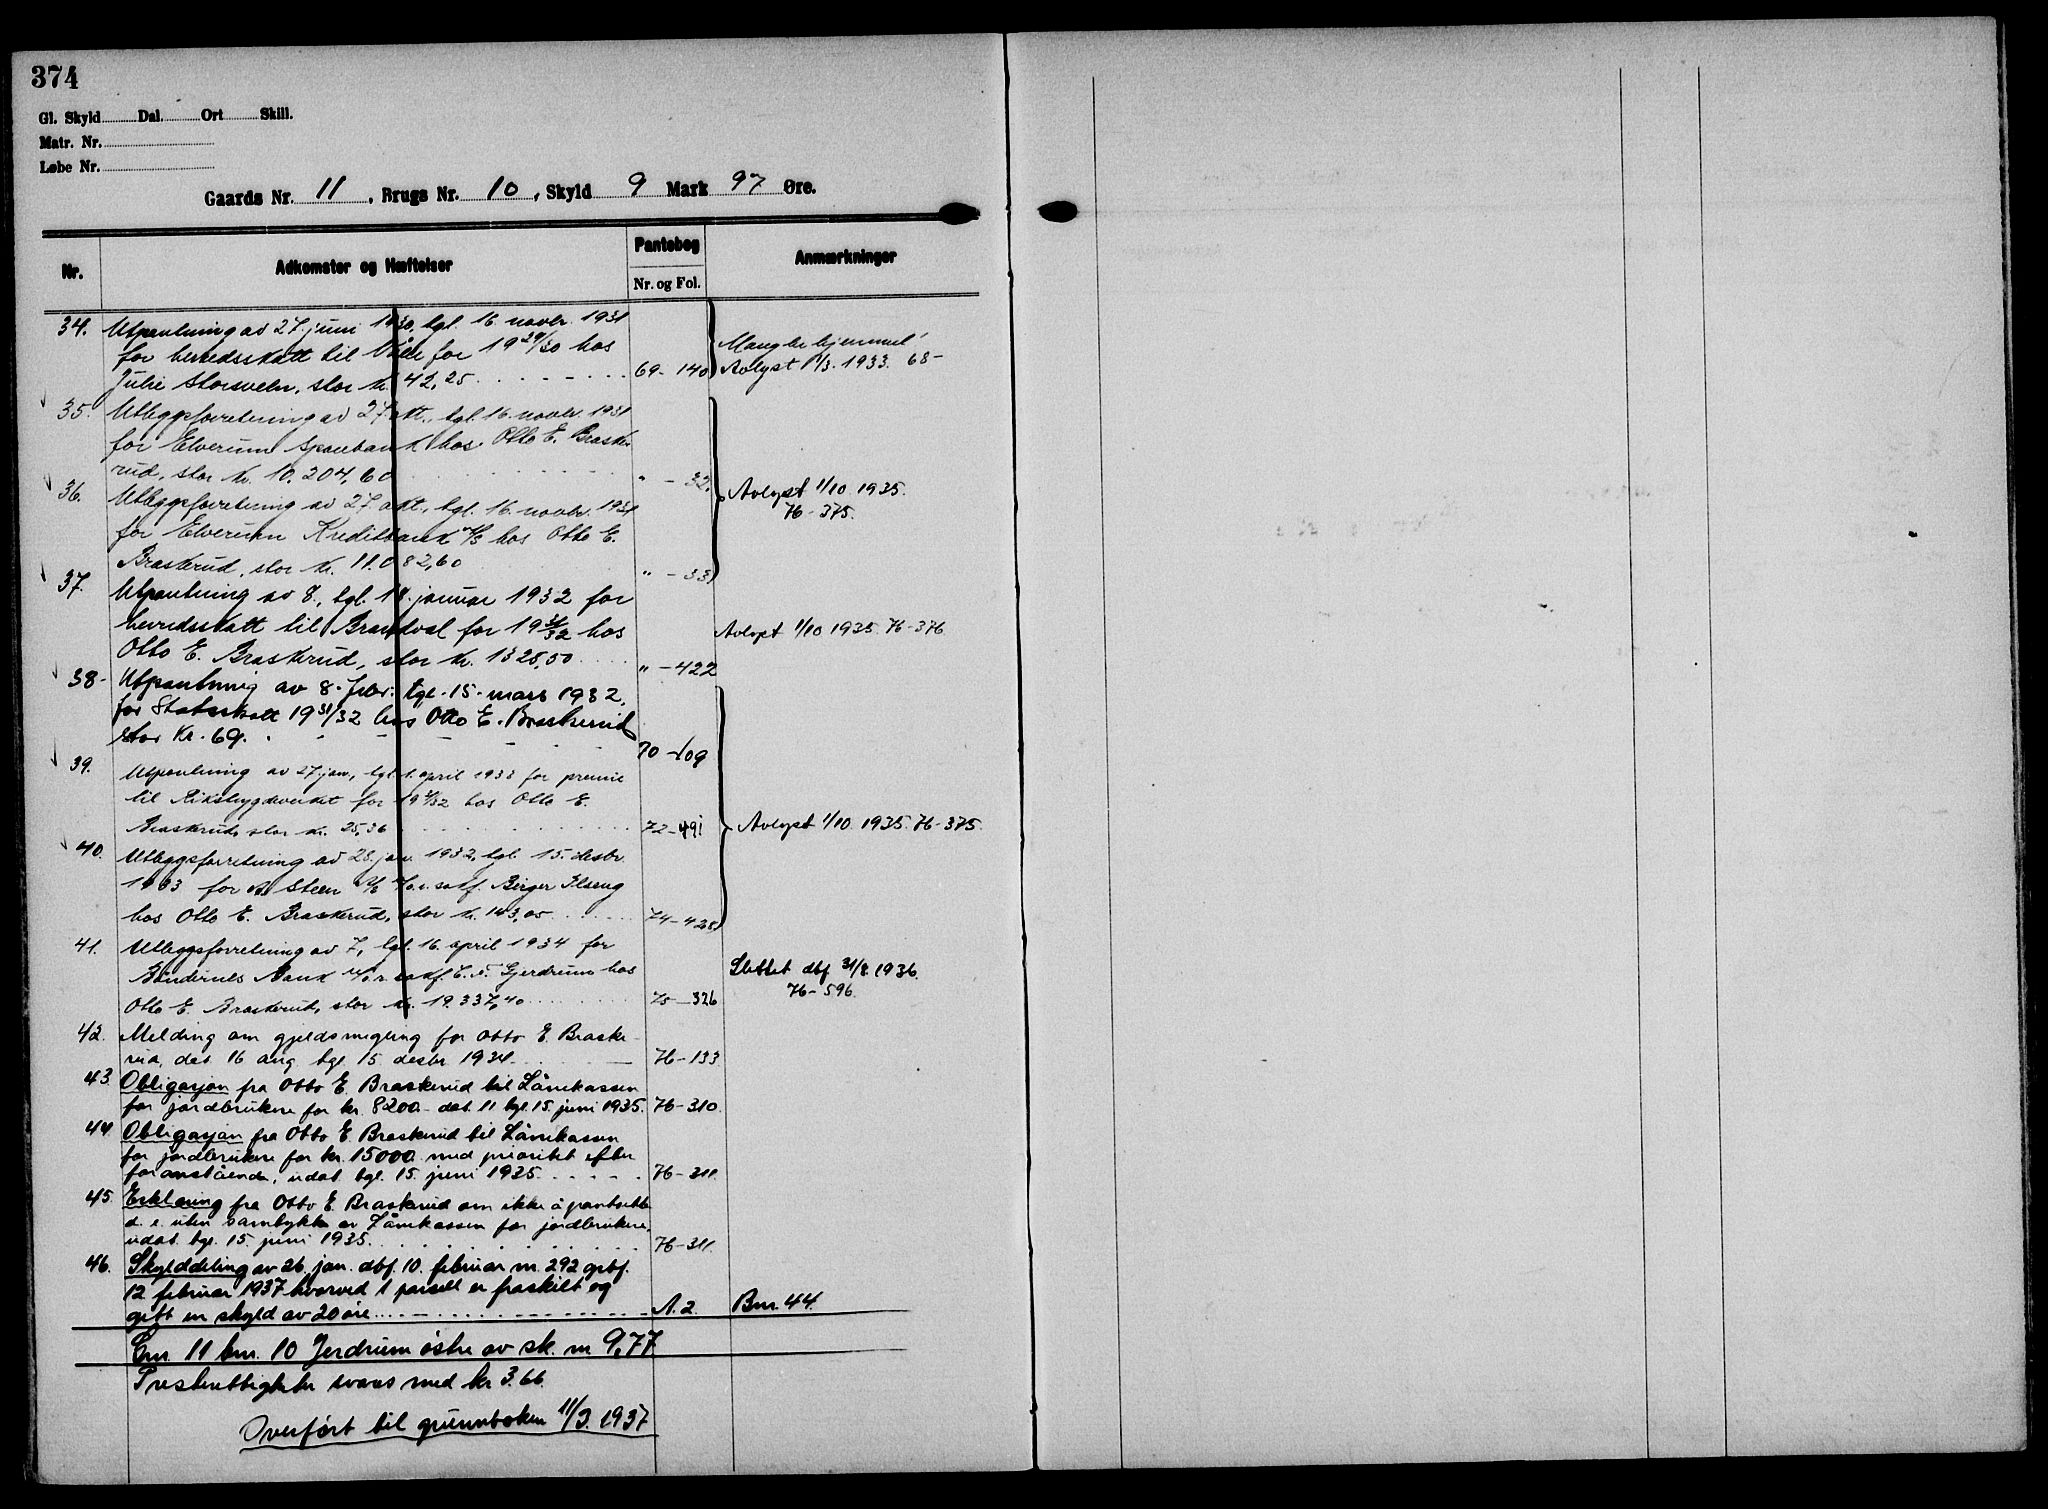 374
Gl. Skyld Dal. Ort Skill.
Matr. Nr.
Løbe Nr.
Gaards Nr. 11, Brugs Nr. 10, Skyld 9 Mark 97 Øre.
Nr. Adkomster og Hæftelser Pantebog Nr. og Fol. Anmærkninger
34. Utpantning av 27. juni 1930, tgl. 16. novbr. 1931
for herredsskatt til Våler for 1929/30 hos
Julie Storsveen, stor kr. 42,25 69-140
Mangler hjemmel
Avlyst 1/3. 1933. 68-
35. Utleggsforretning av 27. okt., tgl. 16. novbr. 1931
for Elverum Sparebank hos Otto E. Braske-
rud, stor kr. 10.204,60 " - 32.
36. Utleggsforretning av 27. okt., tgl. 16. novbr. 1931
for Elverum Kreditbank A/S hos Otto E.
Braskerud, stor kr. 11.082,60 " - 33
Avlyst 1/10 1935.
76-375.
37. Utpantning av 8., tgl. 18. januar 1932 for
herredsskatt til Brandval for 1931/32 hos
Otto E. Braskerud, stor kr. 1325,50 " - 422
Avlyst 1/10 1935. 76-376
38- Utpantning av 8. febr. tgl. 15. mars 1932,
for Statsskatt 1931/32 hos Otto E. Braskerud
stor Kr. 69. 70-109
39. Utpantning av 27. jan., tgl. 1. april 1933 for premie
til Rikstrygdeverket for 1931/32 hos Otto E.
Braskerud, stor kr. 25,36 72-491
Avlyst 1/10. 1935. 76-375.
40. Utleggsforretning av 28. jan. 1932, tgl. 15. desbr.
1933 for Steen A/S v/o.r.sakf. Birger Ilseng
hos Otto E. Braskerud, stor kr. 143,05 74-428
41. Utleggsforretning av 7., tgl. 16. april 1934 for
Bøndernes Bank v/o.r.sakf. Gjerdrum hos
Otto E. Braskerud, stor kr. 19.337,40 75-326
Slettet dbf 31/8 1936.
76-596.
42. Melding om gjeldsmegling for Otto E. Braske-
rud, dat. 16 aug. tgl 15 desbr. 1934. 76-133
43. Obligasjon fra Otto E. Braskerud til Lånekassen
for jordbrukere for kr. 8200.- dat. 11 tgl. 15. juni 1935. 76-310.
44. Obligasjon fra Otto E. Braskerud til Lånekassen
for jordbrukere for kr. 15000. med prioritet efter
foranstående, udat. tgl. 15. juni 1935. 76-311.
45. Erklæring fra Otto E. Braskerud om ikke å pantsette
d. e. uten samtykke av Lånekassen for jordbrukere,
udat. tgl. 15. juni 1935. 76-311.
46. Skylddeling av 26. jan. dbf. 10. februar nr. 292 grbf.
12 februar 1937 hvorved 1 parsell er fraskilt og
gitt en skyld av 20 øre A. 2. Bnr. 44.
Gnr. 11 bnr. 10 Jerdrum østre av sk. m 9,77
Presterettigheter svares med kr 3.66.
Overført til grunnboken 11/3. 1937